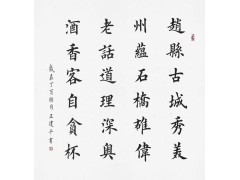 趙縣古城秀美
州蘊石橋雄偉
老話道理深奧
酒香客自貪杯